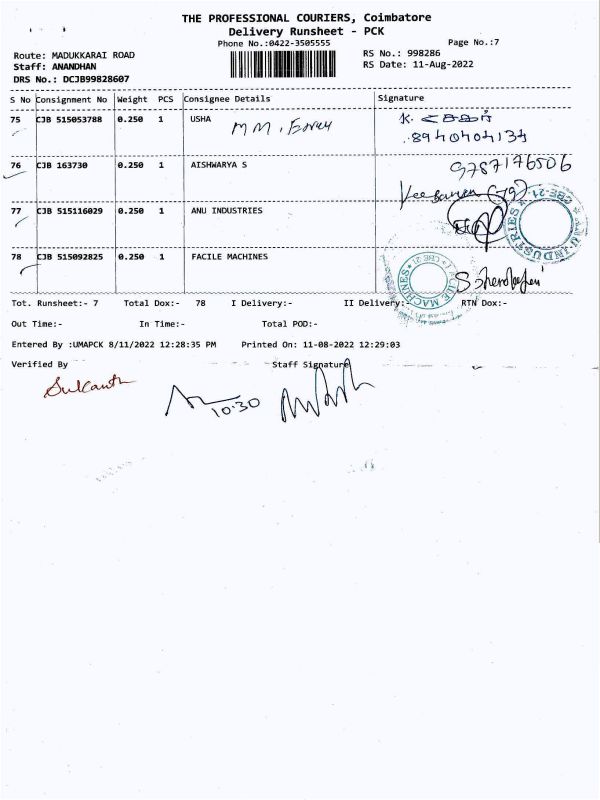 THE PROFESSIONAL COURIERS, Coimbatore
Delivery Runsheet - PCK
Phone No.:0422-3505555
Page No.:7
Route: MADUKKARAI ROAD
RS No.: 998286
Staff: ANANDHAN
RS Date: 11-Aug-2022
DRS No.: DCJB99828607
S No Consignment No Weight PCS Consignee Details Signature
75 CJB 515053788 0.250 1 USHA
8940404134
76 CJB 163730 0.250 1 AISHWARYA S 9787176506
77 CJB 515116029 0.250 1 ANU INDUSTRIES
78 CJB 515092825 0.250 1 FACILE MACHINES
Tot. Runsheet:- 7 Total Dox:- 78 I Delivery:- II Delivery:- RTN Dox:-
Out Time:- In Time:- Total POD:-
Entered By :UMAPCK 8/11/2022 12:28:35 PM Printed On: 11-08-2022 12:29:03
Verified By Staff Signature
10.30